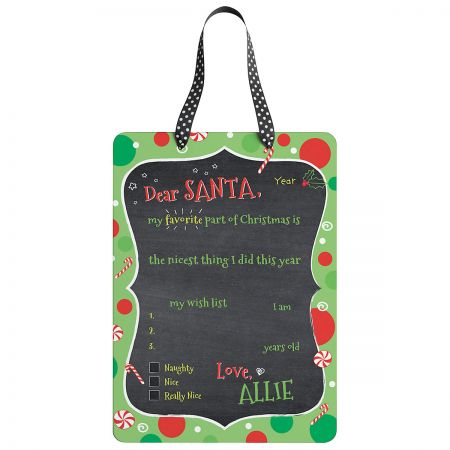 Dear SANTA,
Year
my favorite part of Christmas is
the nicest thing I did this year
my wish list
I am
1.
2.
3.
years old
Naughty
Nice
Really Nice
Love,
ALLIE